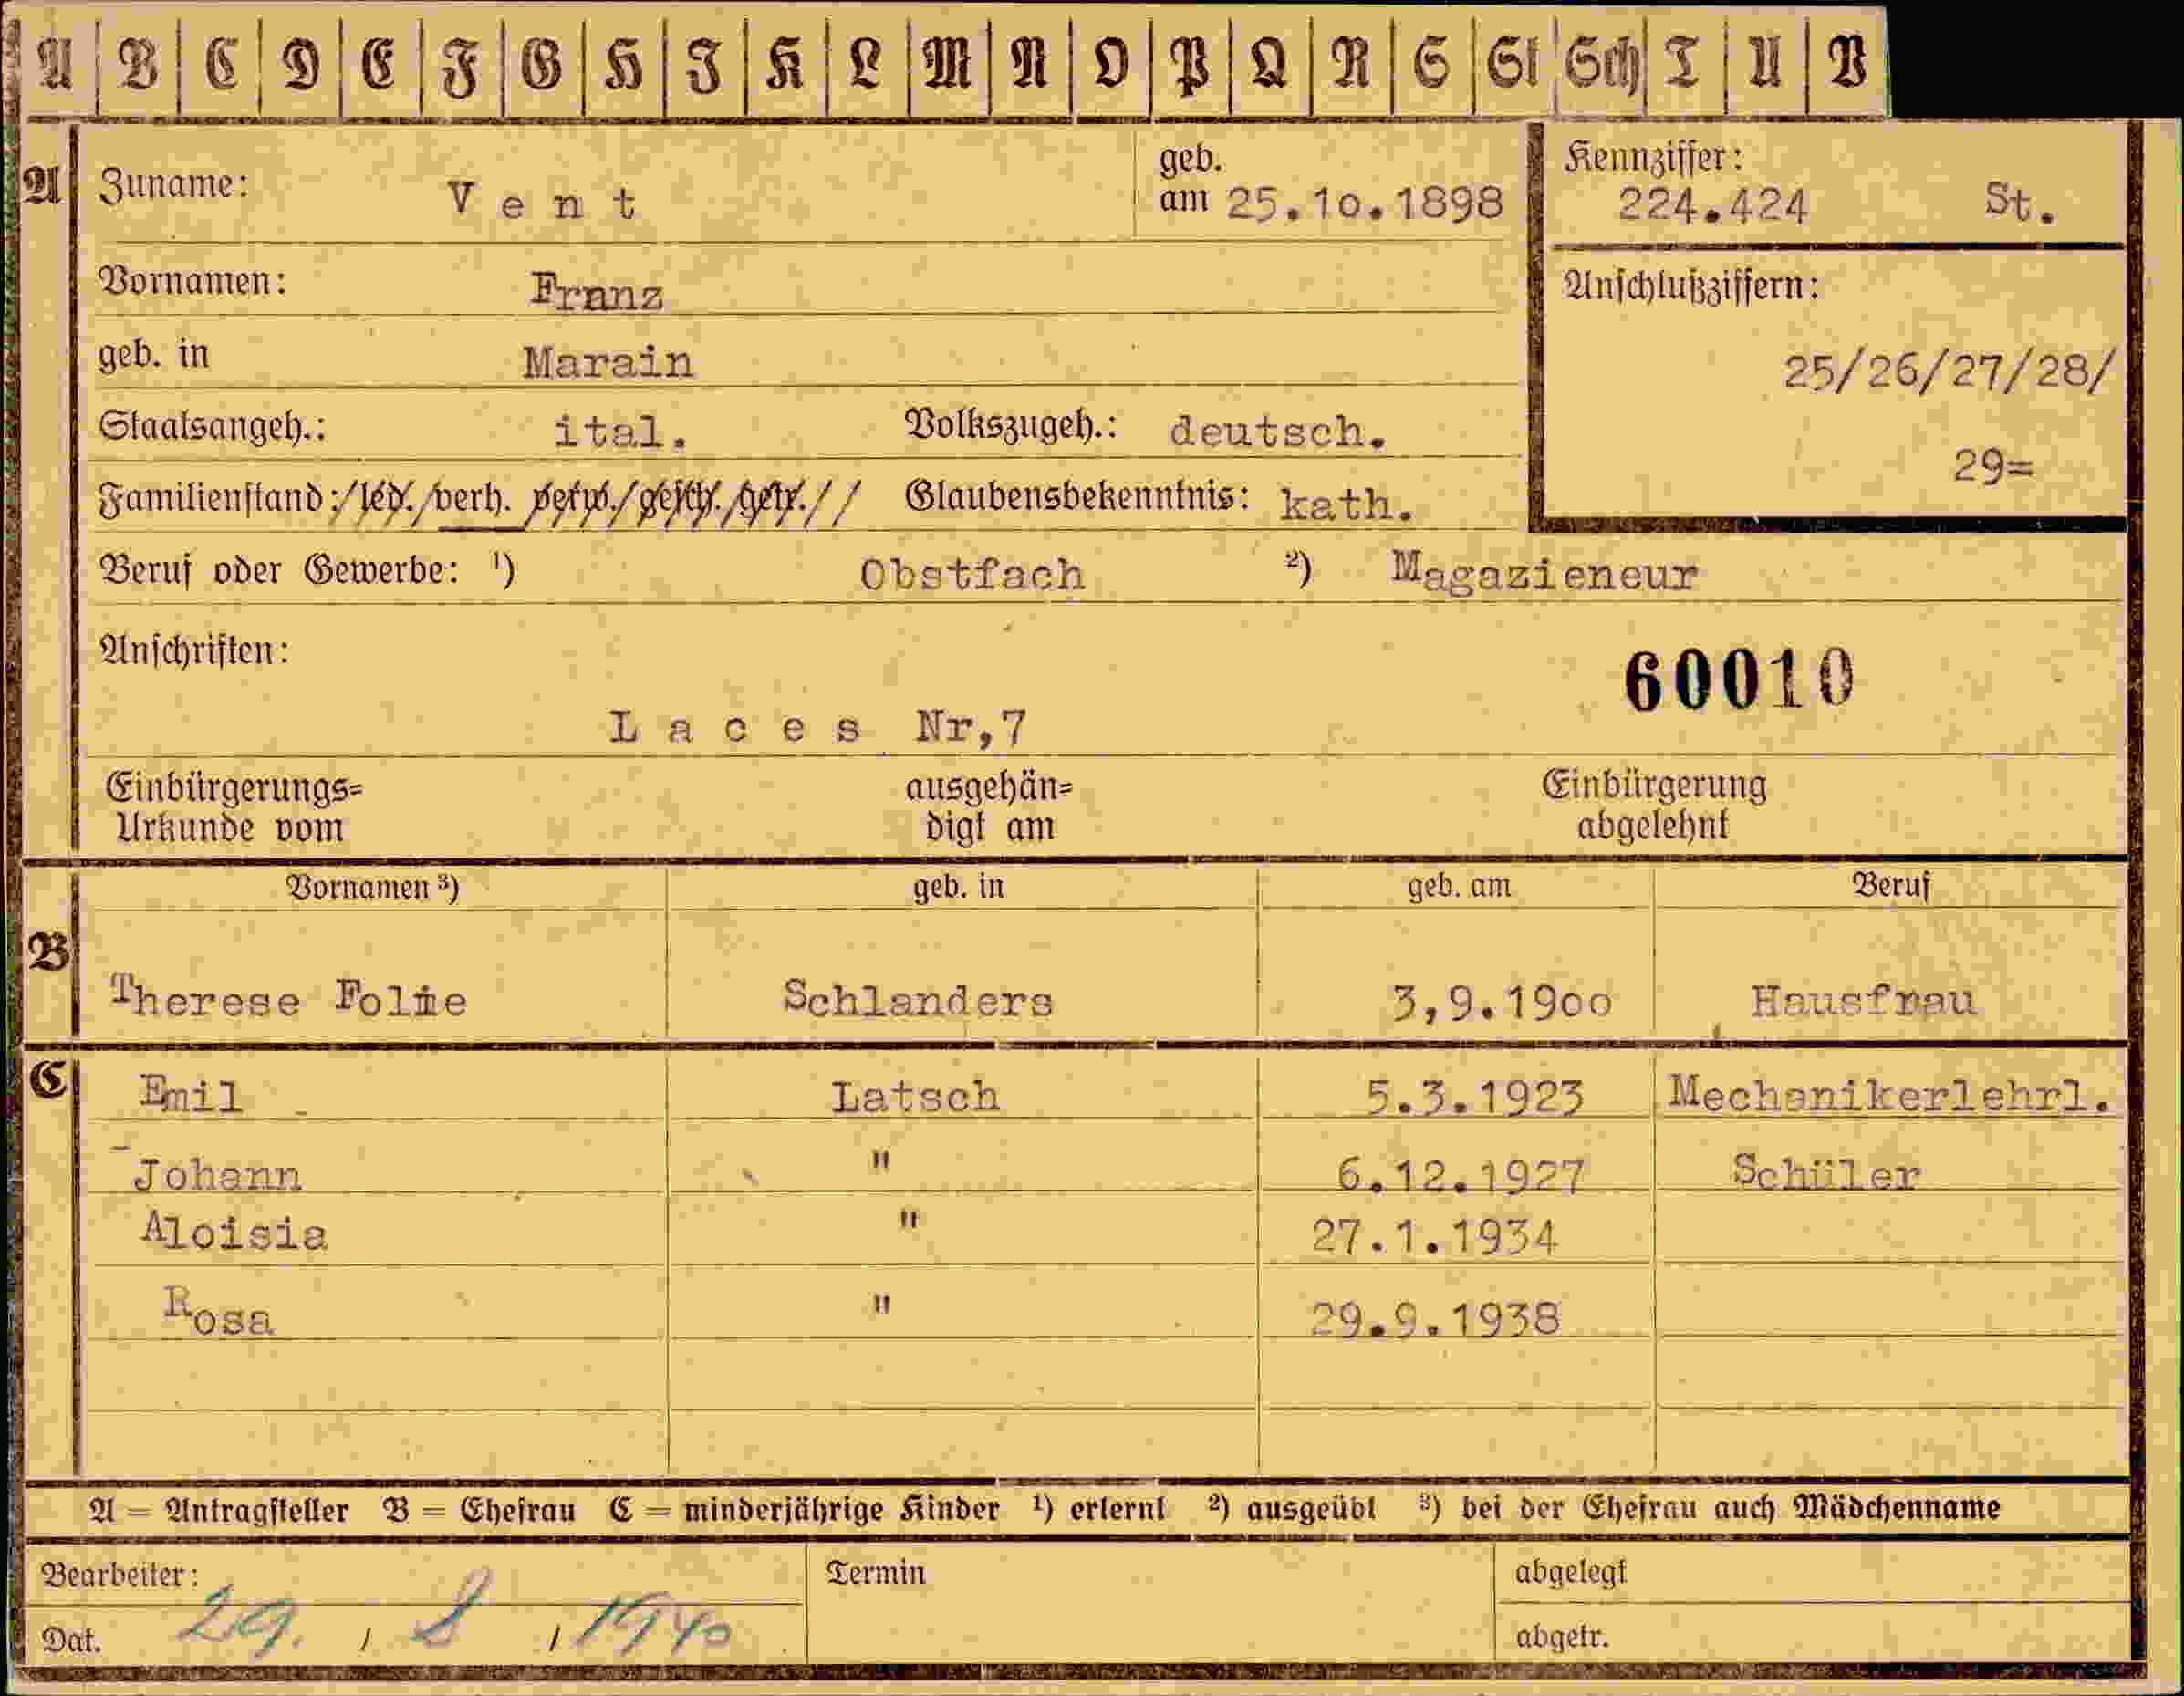 A B C D E F G H I K L M N O P Q R S St Sch T U V
A Zuname: Vent geb. am 25.10.1898 Kennziffer: 224.424 St.
Vornamen: Franz Anschlußziffern:
geb. in Marain 25/26/27/28/
Staatsangeh.: ital. Volkszugeh.: deutsch. 29=
Familienstand: /led./verh. verw./gesch./getr.// Glaubensbekenntnis: kath.
Beruf oder Gewerbe: ¹) Obstfach ²) Magazieneur
Anschriften: 60010
Laces Nr,7
Einbürgerungs= ausgehän= Einbürgerung
Urkunde vom digt am abgelehnt
Vornamen ³) geb. in geb. am Beruf
B Therese Folie Schlanders 3,9.1900 Hausfrau
C Emil Latsch 5.3.1923 Mechanikerlehrl.
Johann " 6.12.1927 Schüler
Aloisia " 27.1.1934
Rosa " 29.9.1938
A = Antragsteller B = Ehefrau C = minderjährige Kinder ¹) erlernt ²) ausgeübt ³) bei der Ehefrau auch Mädchenname
Bearbeiter: Termin abgelegt
Dat. 29. / 8 / 1940 abgetr.